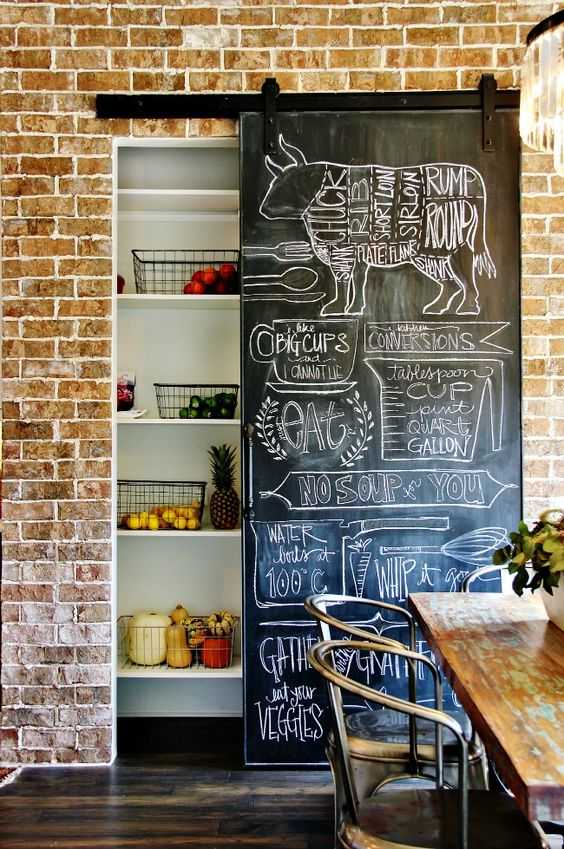 CHUCK
RIB
SHORT LOIN
SIRLOIN
RUMP
ROUND
SHANK
PLATE
FLANK
SHANK
i like
BIG CUPS
and
I CANNOT LIE
kitchen
CONVERSIONS
tablespoon
CUP
pint
QUART
GALLON
eat
NO SOUP for YOU
WATER
boils at
100°C
WHIP it go
eat your
VEGGIES